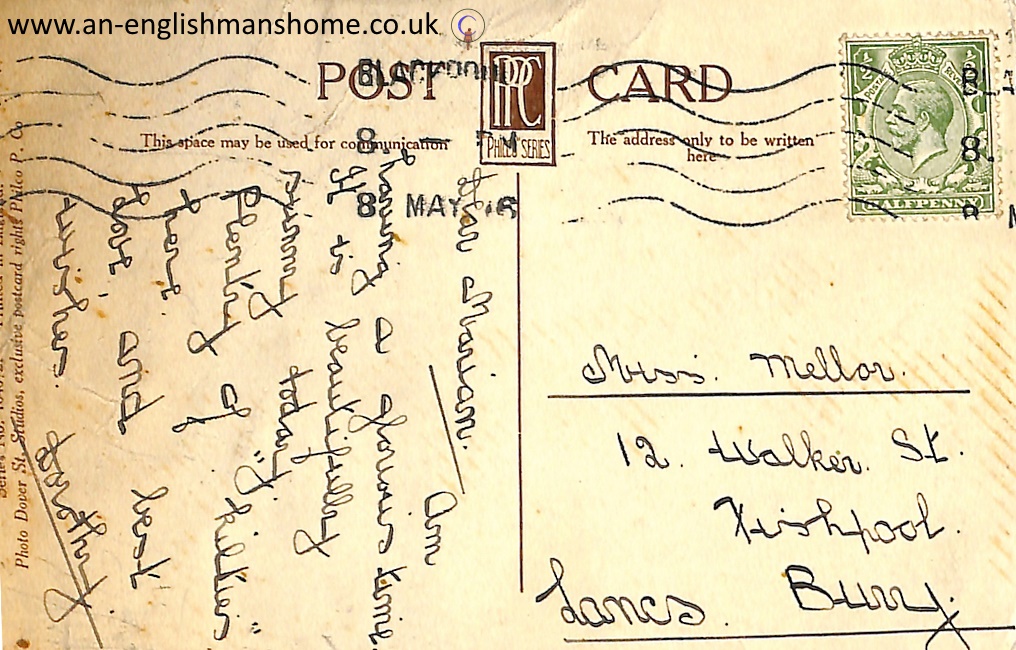 www.an-englishmanshome.co.uk
POST CARD
PPC
PHILCO SERIES
This space may be used for communication
The address only to be written
here
8 PM
8 MAY 16
HALFPENNY
Dear Marian.
Am
having a glorious time
It is beautifully
sunny today.
Plenty of "kilties"
here.
Love and best
wishes. Dorothy
Miss. Mellor.
12. Walker. St.
Fishpool.
Bury.
Lancs.
Photo Dover St. Studios, exclusive postcard rights Philco P. Co